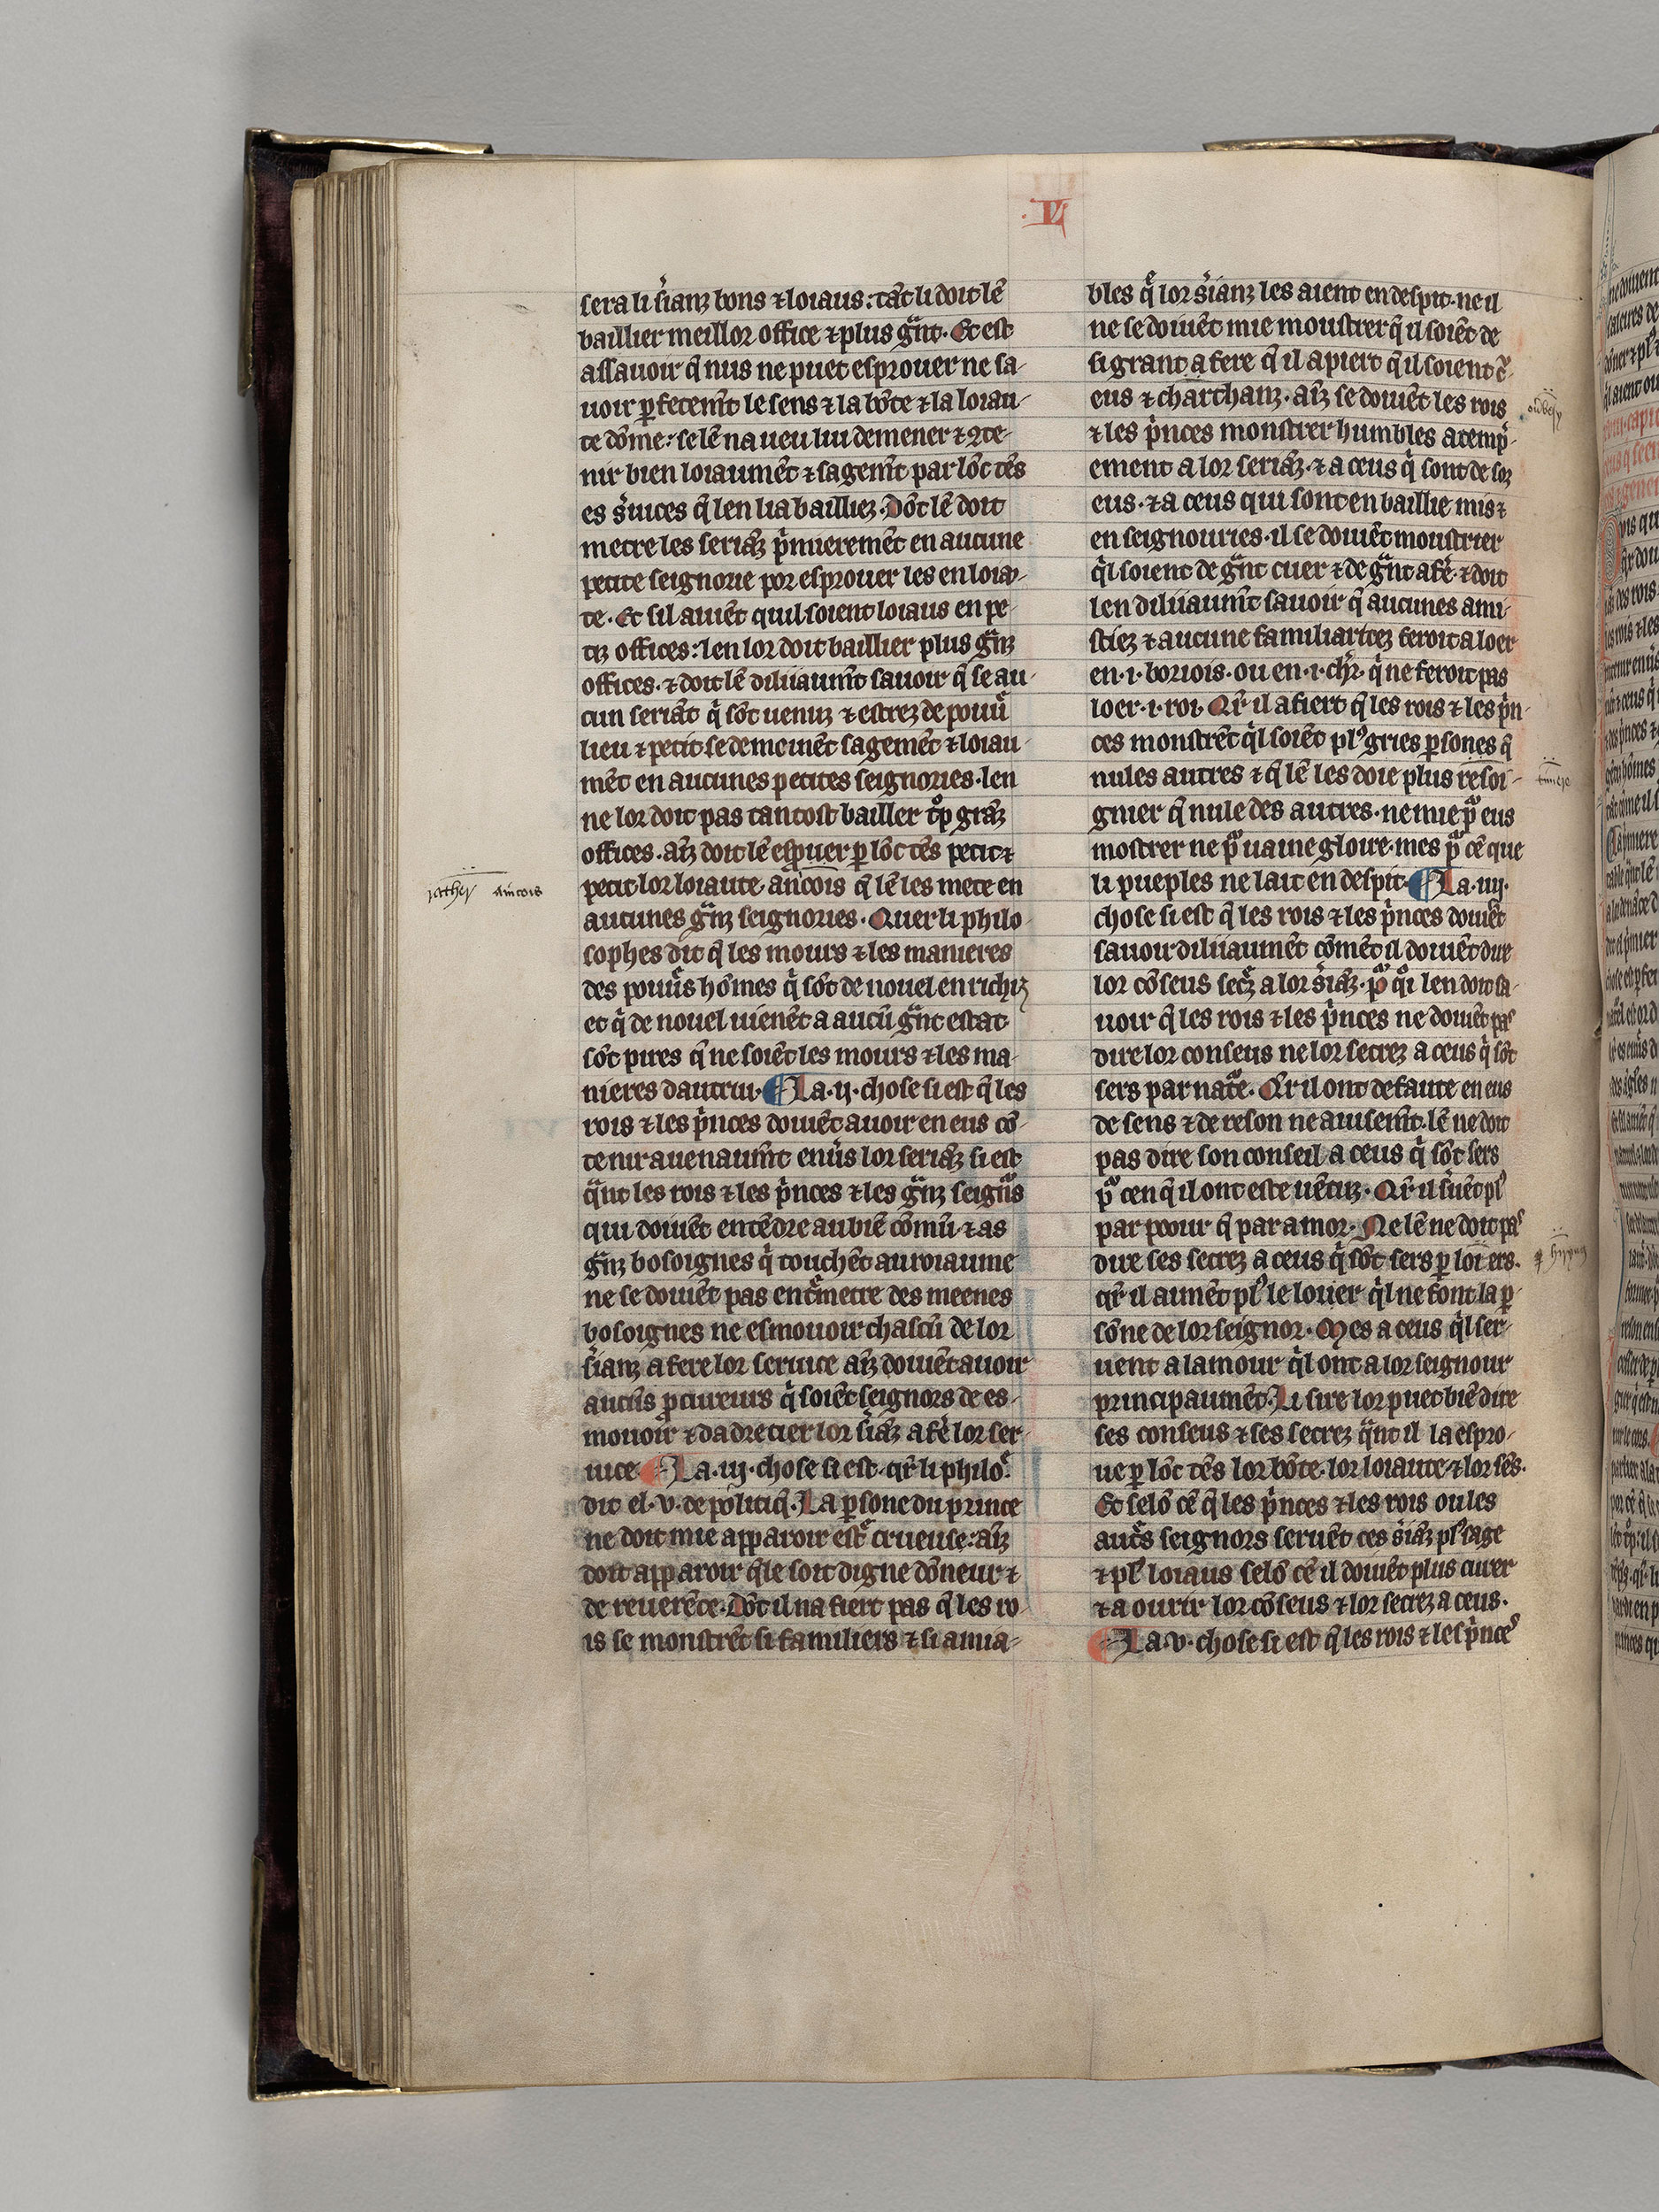 .L.
sera li s̾ianz bons ⁊ loiaus: tāt li doit lē
baillier meillor office ⁊ plus gͣnt. Et est
assauoir q̄ nus ne puet esprouer ne sa-
uoir ꝑfetemēt le sens ⁊ la bōte ⁊ la loiau-
te dōme: se lē na ueu lui demener ⁊ ꝯte-
nir bien loiaumēt ⁊ sagemēt par lōc tēs
es s̾uices q̄ len li a bailliez. Dōt lē doit
metre les seriāz p̾mieremēt en aucune
petite seignorie por esprouer les en loiau-
te. Et sil auiēt quil soient loiaus en pe-
tiz offices: len lor doit baillier plus gͣnz
offices. ⁊ doit lē diliiaumēt sauoir q̄ se au-
cun seriāt q̾ sōt uenuz ⁊ estrez de pouu̾
lieu ⁊ petit se demeinēt sagemēt ⁊ loiau-
mēt en aucunes petites seignories. len
ne lor doit pas tantost bailler tͦp grāz
offices. aīz doit lē esprouer ꝑ lōc tēs petit ⁊
petit lor loiaute ancois q̄ lē les mete en
aucunes gͣnz seignories. Quer li philo-
sophes dit q̄ les mours ⁊ les manieres
des pouu̾s hōmes q̾ sōt de nouel enrichiz
et q̾ de nouel uienēt a aucū gͣnt estat
sōt pires q̄ ne soiēt les mours ⁊ les ma-
nieres dautrui. ¶ La .ij. chose si est q̄ les
rois ⁊ les p̾nces doiuēt auoir en eus cō-
tenir auenaumēt enu̾s lor seriāz si est
qͣnt les rois ⁊ les p̾nces ⁊ les gͣnz seignͦs
qui doiuēt entēdre au biē cōmū. ⁊ as
gͣnz bosoignes q̾ touchēt au roiaume
ne se doiuēt pas ent̾metre des meenes
bosoignes ne esmouoir chascū de lor
s̾ianz a fere lor seruice aīz doiuēt auoir
aucūs ꝓcureurs q̾ soiēt seignors de es-
mouoir ⁊ dadrecier lor s̾iāz a fe̾ lor ser-
uice ¶ La .iij. chose si est. qr̄ li philoͤ.
dit el .v. de politiq̄. La ꝑsone du prince
ne doit mie apparoir est̾ crueuse: aīz
doit apparoir q̄le soit digne dōneur ⁊
de reuerēce. Dōt il na fiert pas q̄ les ro-
is se monstrēt si familiers ⁊ si amia-
bles q̄ lor s̾ianz les aient en despit. ne il
ne se doiuēt mie moustrer q̄ il soiēt de
si grant a fere q̄ il apiert q̄ il soient c̾-
eus ⁊ charchanz. aīz se doiuēt les rois
⁊ les p̾nces monstrer humbles atemp̾-
ement a lor seriāz. ⁊ a ceus q̾ sont de soz
eus. ⁊ a ceus qui sont en baillie mis ⁊
en seignouries. il se doiuēt moustrier
q̾l soient de gͣnt cuer ⁊ de gͣnt afe̾. ⁊ doit
len diliiaumēt sauoir q̄ aucunes ami-
stiez ⁊ aucune familiaritez feroit a loer
en .i. boriois. ou en .i. chr̄. q̾ ne feroit pas
loer .i. roi. Qr̄ il afiert q̄ les rois ⁊ les p̾n-
ces monstrēt q̾l soiēt plꝰ gries ꝑsones q̄
nules autres ⁊ q̄ lē les doie plus resoi-
gnier q̄ nule des autres. ne mie pͦ eus
mostrer ne pͦ uaine gloire. mes pͦ cē que
li pueples ne lait en despit. ¶ La .iiij.
chose si est q̄ les rois ⁊ les p̾nces doiuēt
sauoir diliiaumēt cōmēt il doiuēt dire
lor cōseus secz̾ a lor s̾iāz. pͦ qͦi len doit sa-
uoir q̄ les rois ⁊ les p̾nces ne doiuēt pas
dire lor conseus ne lor secrez a ceus q̾ sōt
sers par natͤe. Qr̄ il ont defaute en eus
de sens ⁊ de reson ne auisemēt. lē ne doit
pas dire son conseil a ceus q̾ sōt sers
pͦ cen q̄ il ont este uēcuz. Qr̄ il s̾uēt plꝰ
par poour q̄ par amor. Ne lē ne doit paˢ
dire ses secrez a ceus q̾ sōt sers ꝑ loiers.
qr̄ il aimēt plꝰ le loier q̾l ne font la ꝑ-
sōne de lor seignor. Mes a ceus q̾l ser-
uent a lamour q̾l ont a lor seignour
principaumēt. Li sire lor puet biē dire
ses conseus ⁊ ses secrez qͣnt il la espro-
ue ꝑ lōc tēs lor bōte. lor loiaute. ⁊ lor sēs.
Et selō cē q̄ les p̾nces ⁊ les rois ou les
aut̾s seignors seruēt ces s̾iāz plꝰ sage
⁊ plꝰ loiaus selō cē il doiuēt plus cuier
⁊ a ourir lor cōseus ⁊ lor secrez a ceus.
¶ La .v. chose si est q̄ les rois ⁊ les p̾nceˢ
rather ancois